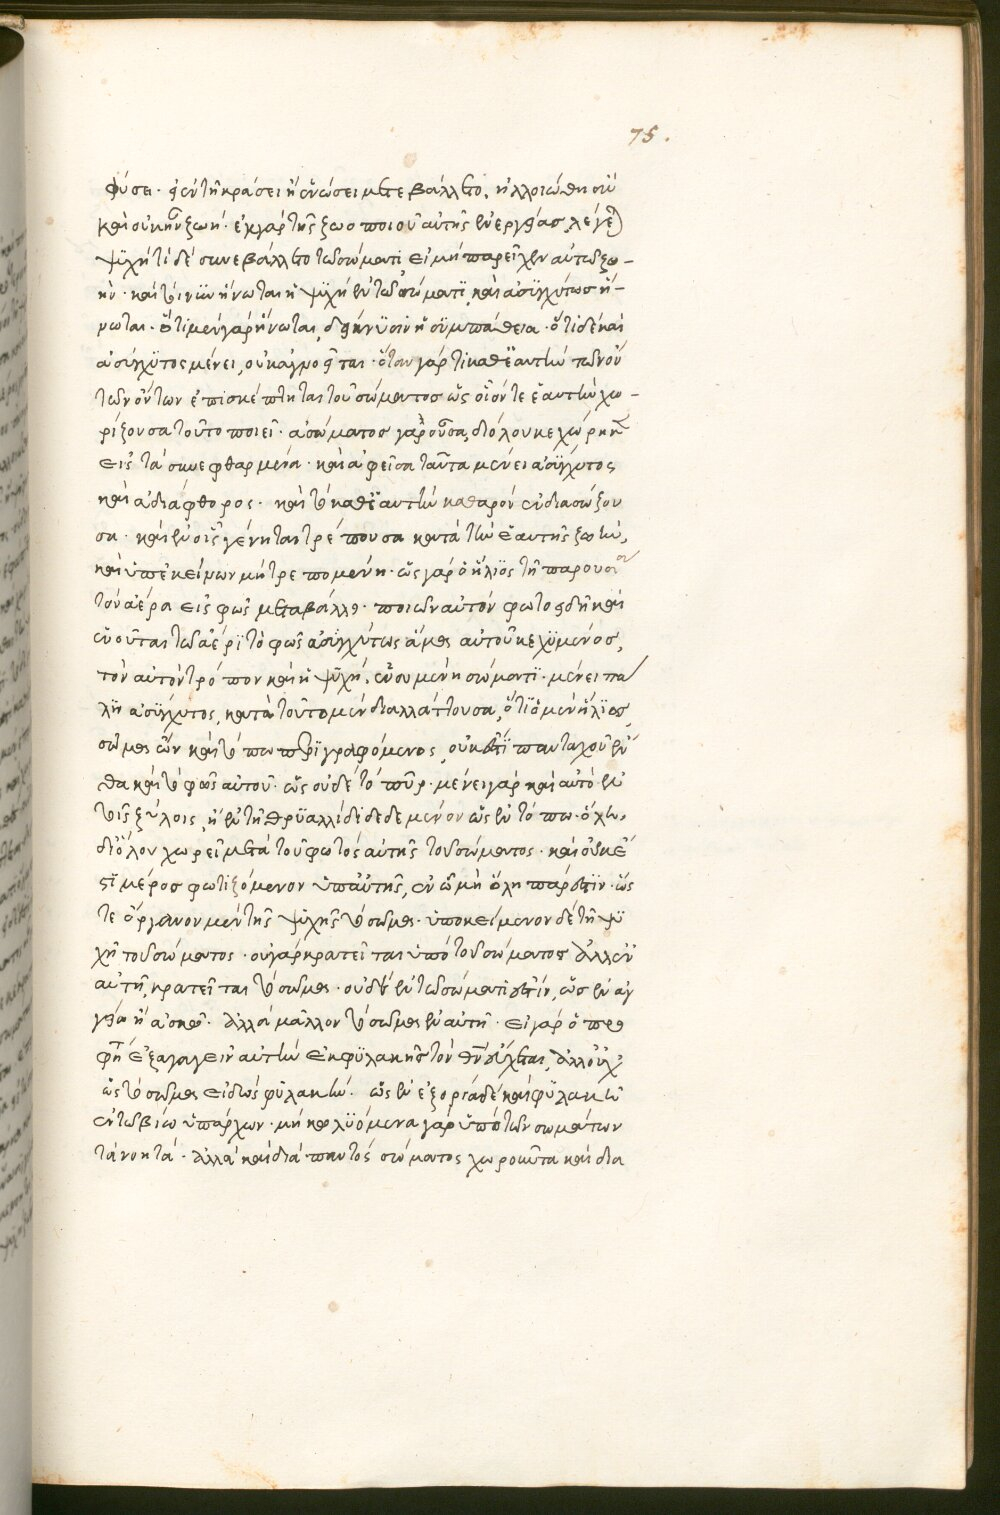 75.
φύσει· ἐν τῆ κράσει ἢ ἑνώσει μετεβάλλετο, ἠλλοιώθη ἂν
καὶ οὐκ ἦν ζωή· ἐκ γὰρ τῆς ζωοποιοῦ αὐτῆς ἐνεργείας λέγεται
ψυχή τί δὲ συνεβάλλετο τῶ σώματι εἰ μὴ παρεῖχεν αὐτῶ ζω-
ήν· καὶ τοίνυν ἥνωται ἡ ψυχὴ ἐν τῶ σώματι, καὶ ἀσυγχύτως ἥ-
νωται. ὅτι μὲν γὰρ ἥνωται, δείκνυσιν ἡ συμπάθεια· ὅτι δὲ καὶ
ἀσύγχυτος μένει, οὐκ· ὅταν γάρ τι καθ' ἑαυτὴν τῶν νοη
τῶν ὄντων ἐπισκέπτηται τοῦ σώματος ὡς οἷόν τε ἑαυτὴν χω-
ρίζουσα τοῦτο ποιεῖ· ἀσώματος γὰρ οὖσα, διόλου κεχώρηκεν
εἰς τὰ συνεφθαρμένα· καὶ ἀφεῖσα ταῦτα μένει ἀσύγχυτος
καὶ ἀδιάφθορος· καὶ τὸ καθ' ἑαυτὴν καθαρὸν ἓν διασώζου
σα· καὶ ἐν οἷς γένηται τρέπουσα κατὰ τὴν ἑαυτῆς ζωὴν,
καὶ ὑπ' ἐκείνων μὴ τρεπομένη· ὡς γὰρ ὁ ἥλιος τῆ παρουσία
τὸν ἀέρα εἰς φῶς μεταβάλλει· ποιῶν αὐτὸν φωτοειδῆ καὶ
ἑνοῦται τῶ ἀέρι τὸ φῶς ἀσυγχύτως ἅμα αὐτοῦ κεχυμένος,
τὸν αὐτὸν τρόπον καὶ ἡ ψυχὴ. ἑνουμένη σώματι· μένει πά
λιν ἀσύγχυτος, κατὰ τοῦτο μὲν διαλλάττουσα, ὅτι ὁ μὲν ἥλιος
σῶμα ὢν καὶ τόπω περιγραφόμενος, οὐκ ἔστι πανταχοῦ ἔν
θα καὶ τὸ φῶς αὐτοῦ· ὡς οὐδὲ τὸ πῦρ· μένει γὰρ καὶ αὐτὸ ἐν
τοῖς ξύλοις, ἢ ἐν τῆ θρυαλλίδι δεδεμένον ὡς ἐν τόπω· ὅλη
διόλου χωρεῖ μετὰ τοῦ φωτὸς αὐτῆς τοῦ σώματος· καὶ οὐκ ἔ
στι μέρος φωτιζόμενον ὑπ' αὐτῆς, ἐν ὧ μὴ ὅλη πάρεστιν· ὥς
τε ὄργανον μὲν τῆς ψυχῆς τὸ σῶμα· ὑποκείμενον δὲ τῆ ψυ
χῆ τοῦ σώματος· οὐ γὰρ κρατεῖται ὑπὸ τοῦ σώματος ἀλλ' ἐν
αὐτῆ, κρατεῖται τὸ σῶμα· οὐδὲ ἐν τῶ σώματι ἐστίν, ὡς ἐν ἀγ
γείω ἢ ἀσκῶ· ἀλλὰ μᾶλλον τὸ σῶμα ἐν αὐτῆ· εἰ γὰρ ὁ προ
φήτης ἐξαγαγεῖν αὐτὴν ἐκ φυλακῆς τὸν θεὸν εὔχεται, ἀλλ' οὐχ
ὡς τὸ σῶμα εἰδὼς φυλακὴν· ὡς ἐν ἐξορία δὲ καὶ φυλακῆ
ἐν τῶ βίω ὑπάρχων· μὴ κωλυόμενα γὰρ ὑπὸ τῶν σωμάτων
τὰ νοητά· ἀλλὰ καὶ διὰ παντὸς σώματος χωροῦντα καὶ δια